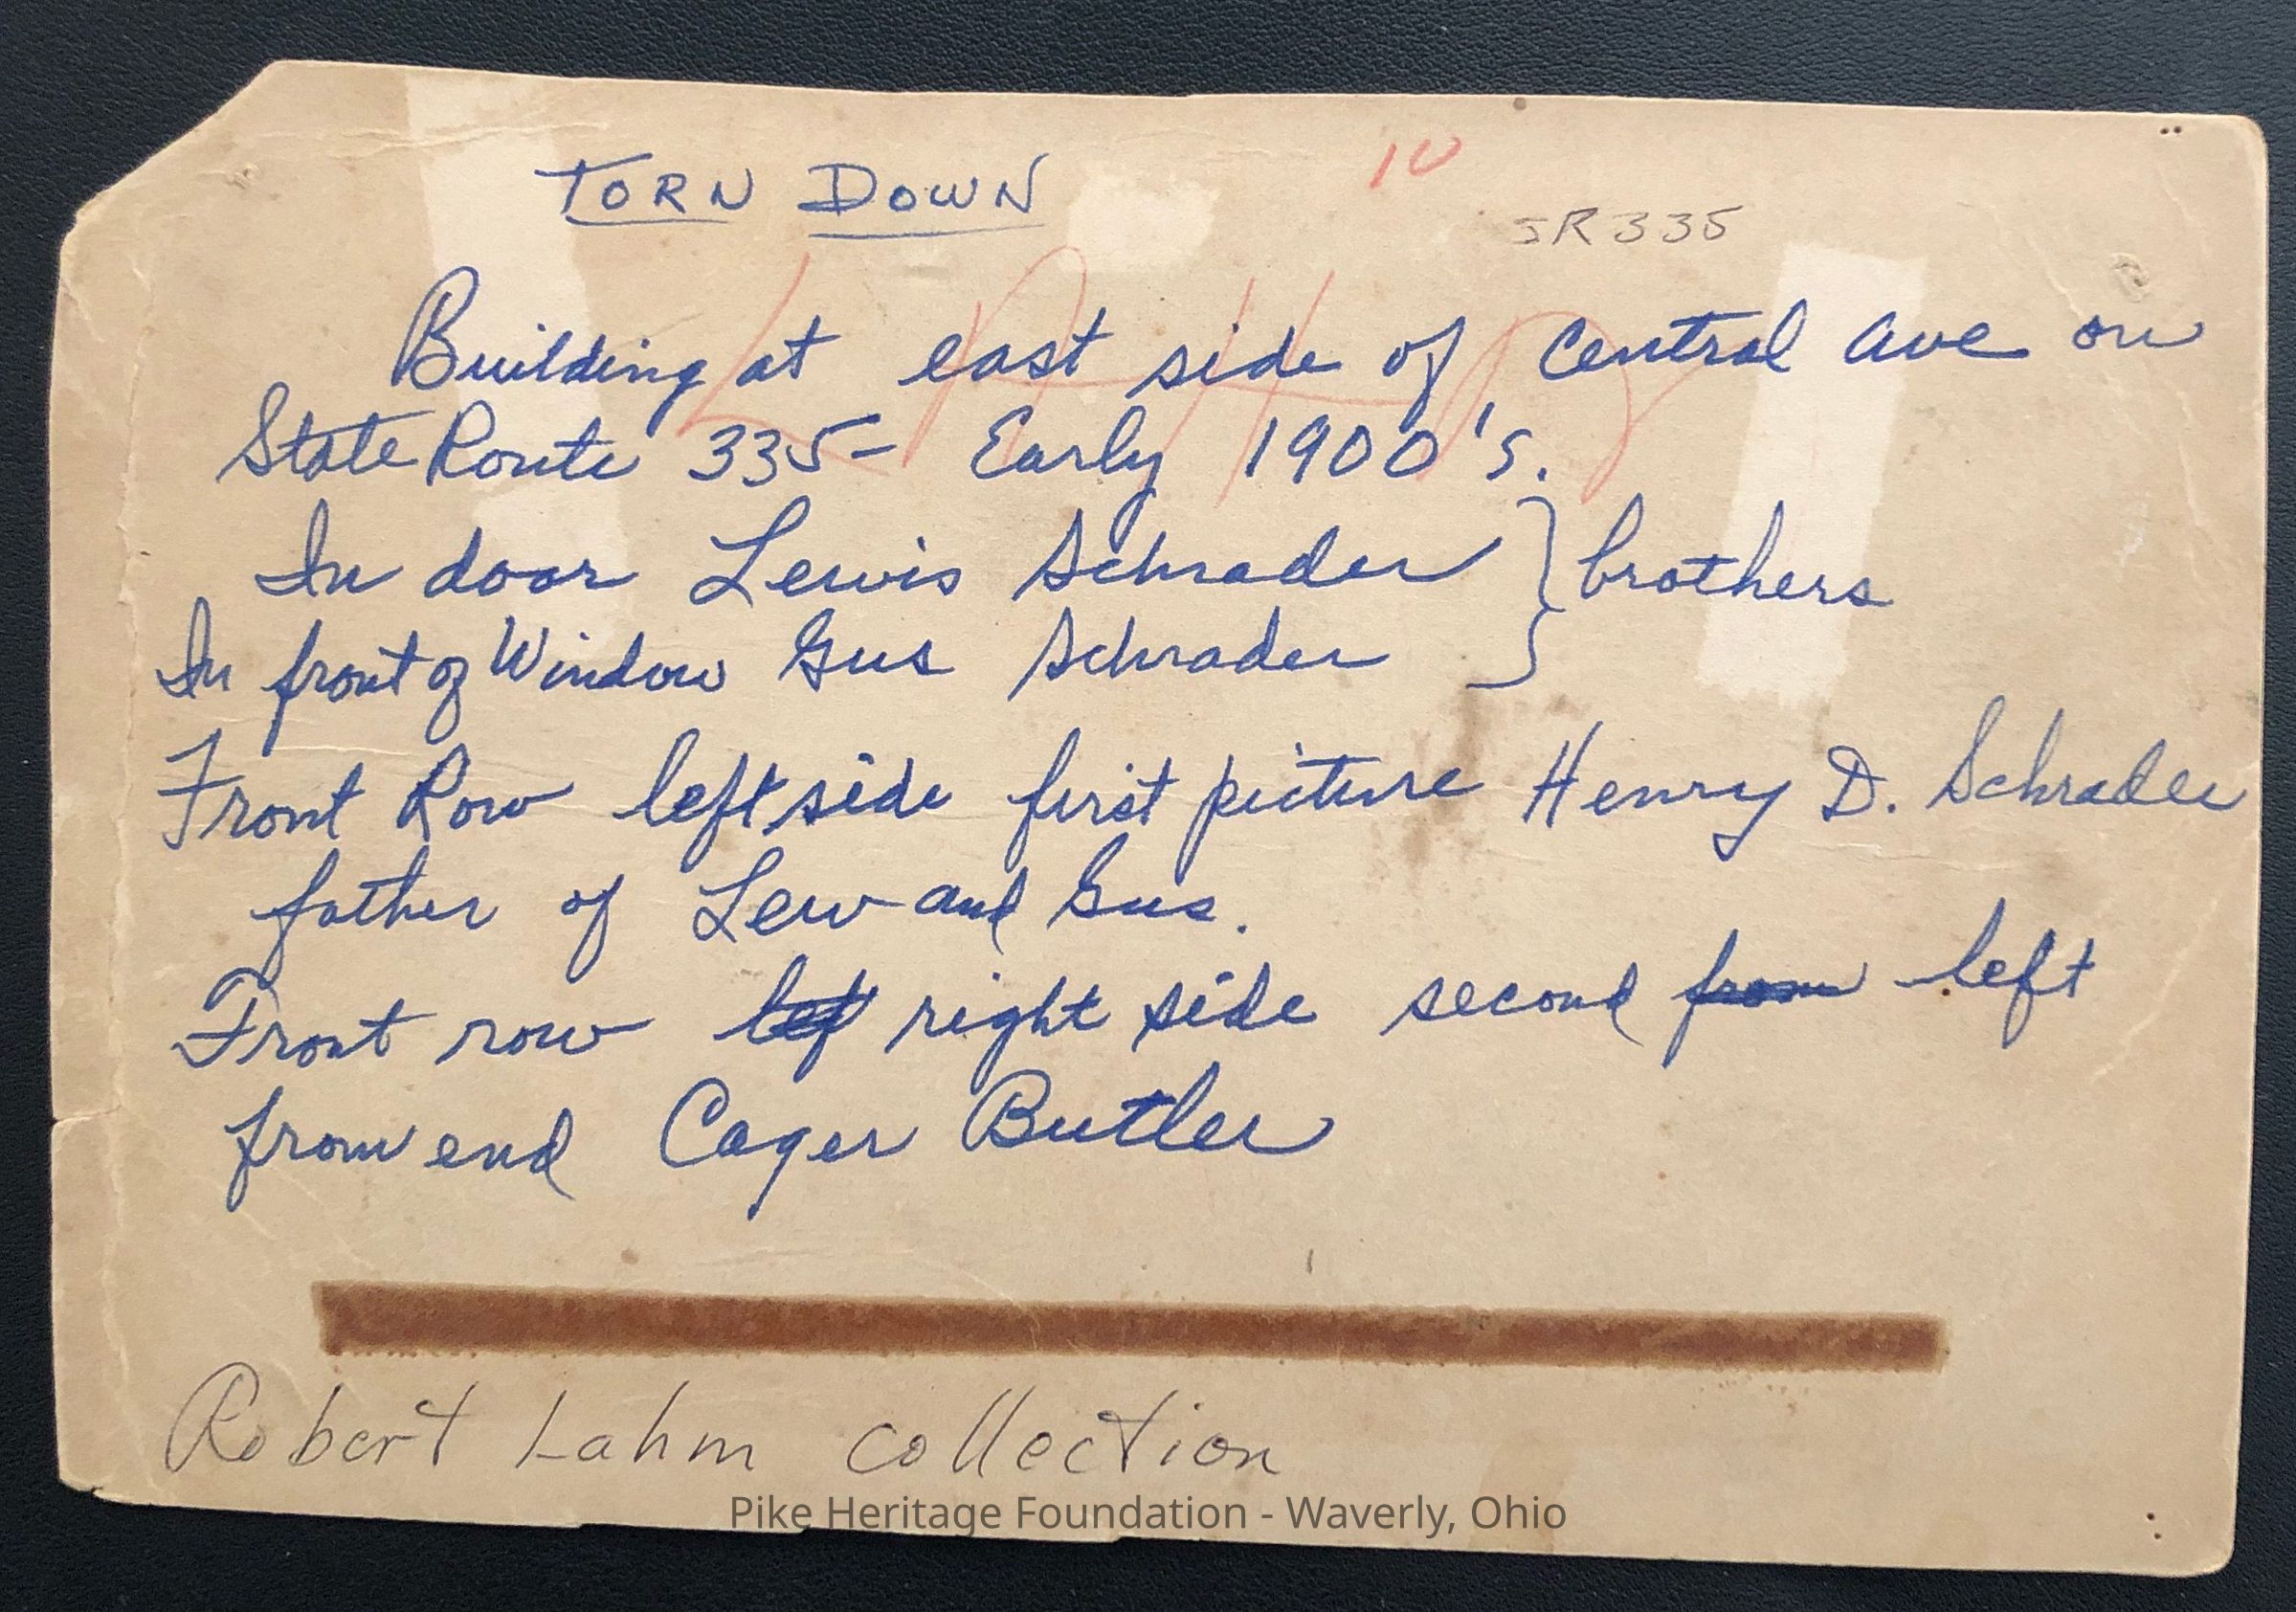 TORN DOWN
10
SR 335
Building at east side of Central Ave on
State Route 335- Early 1900's.
In door Lewis Schrader } brothers
In front of Window Gus Schrader }
Front Row left side first picture Henry D. Schrader
father of Lew and Gus.
Front row lef right side second from left
from end Cager Butler
Robert Lahm collection
Pike Heritage Foundation - Waverly, Ohio